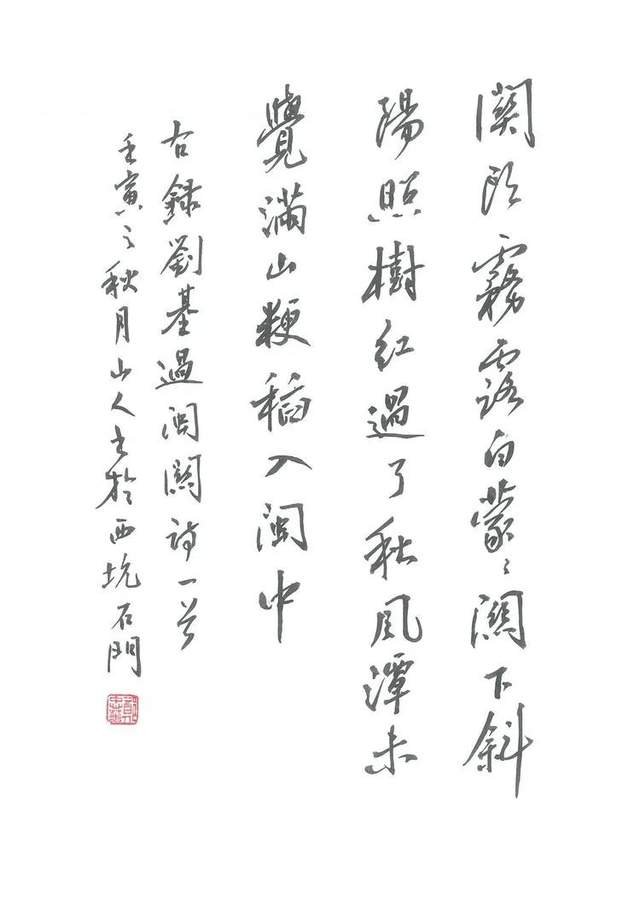 關頭霧露白蒙〻關下斜
陽照樹紅過了秋風潭未
覺滿山粳稻入閩中
右録劉基過閩關詩一首
壬寅之秋月山人書於西坑石門